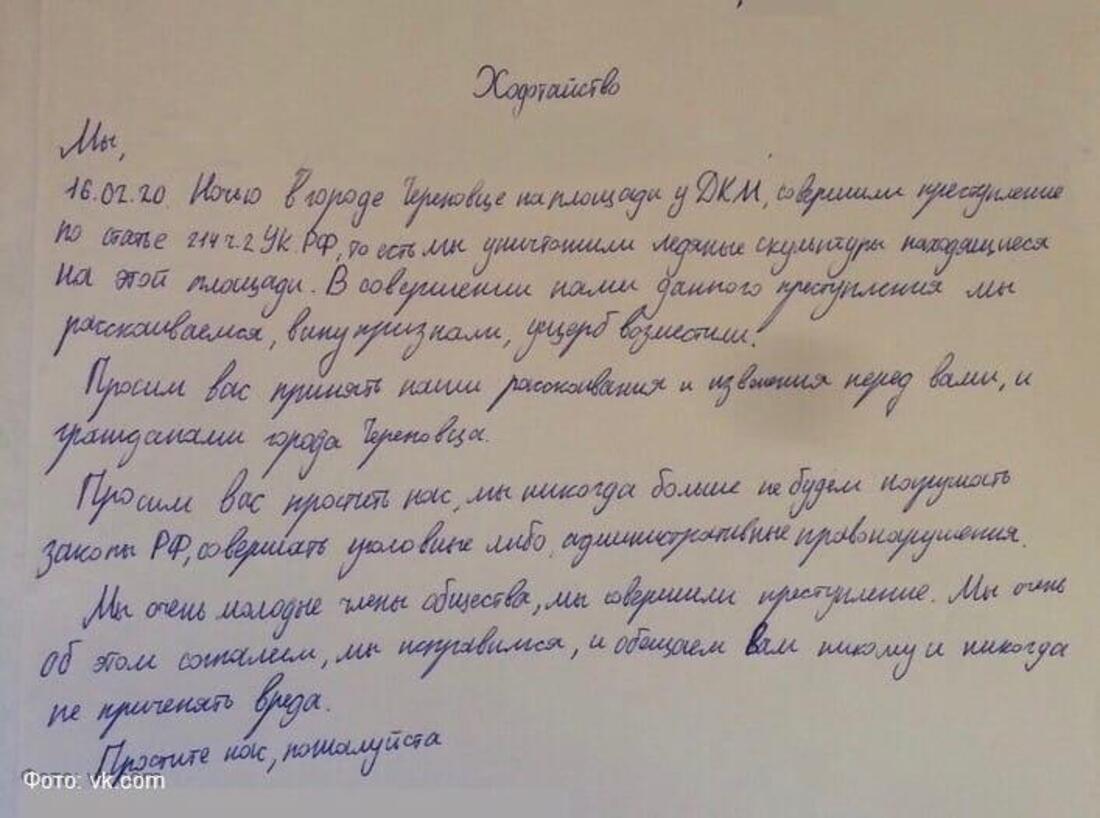 Ходотайство
Мы,
16.02.20. Ночью в городе Череповце на площади у ДКМ, совершили преступление
по статье 214 ч.2 УК РФ, то есть мы уничтожили ледяные скульптуры находящиеся
на этой площади. В совершении нами данного преступления мы
расскаиваемся, вину признали, ущерб возместили.
Просим вас принять наши расскаивания и извенения перед вами, и
гражданами города Череповца.
Просим вас простить нас, мы никогда больше не будем нарушать
законы РФ, совершать уголовные либо административные правонарушения.
Мы очень молодые члены общества, мы совершили преступление. Мы очень
об этом сожалеем, мы исправимся, и обещаем вам никому и никогда
не приченять вреда.
Простите нас, пожалуйста
Фото: vk.com